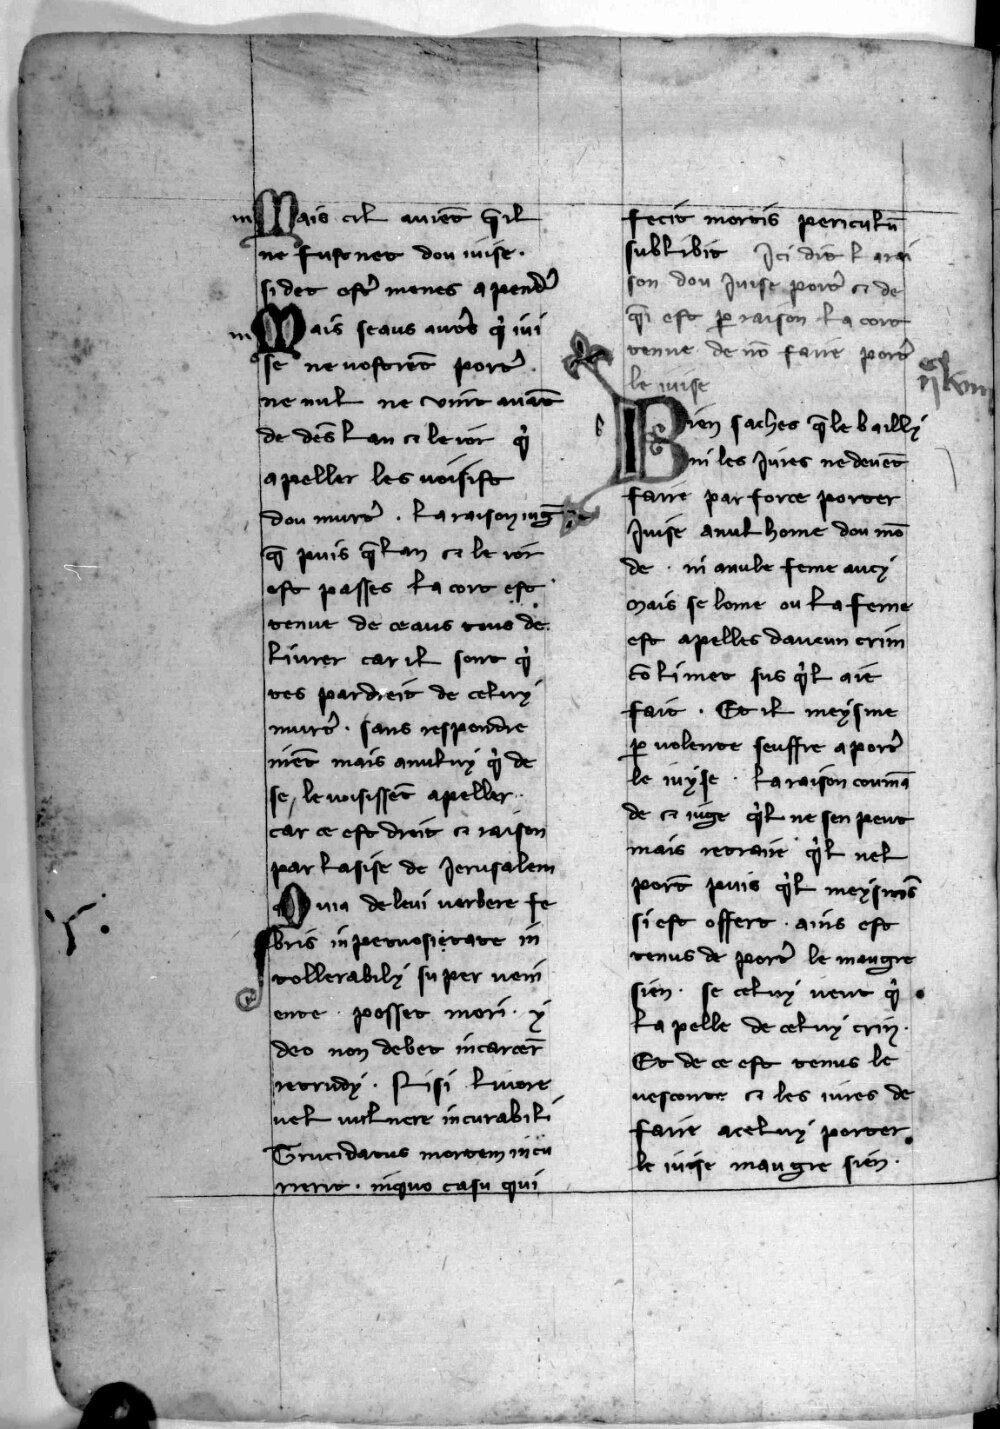 Mais cil avient q̄ il
ne fust net dou iuise .
si det estr̄ menes a pendr̄
Mais se aus autrs̄ qͥ iui
se ne vostrent̄ portr̄ .
ne nul ne vint auant̄
de dēs lan & le ior qͥ
apeller les voisist
dou murtr̄ . la raison iuge
q̄ puis q̄ lan & le ior
est passes la cort est
tenue de ceaus tous de
liurer car il sont qͥ
tes par dreit de celuy
murtr̄ . sans respondre
nient̄ mais a nuluy qͥ de
se le voisissent̄ apeller .
car ce est droit & raison
par lasise de Jerusalem
Quia de levi verbere fe
bris inpetuosietate in
tollerabily super veni
ente . posset mori . y
deo non debet incarcer̄
retrudy . Nisi livore
vel vulnere incurabili
Trucidatus mortem incu
rrerit . in quo casu qui
fecit mortis periculū
subkibit Ici dit l a rai
son dou Juise portr̄ & de
qͥ est p̄ raison la cort
tenue de nō faire portr̄
le iuise
Bien saches q̄ le bailly
ni les Jures ne devent̄
faire par force porter
Juise a nul home dou mō
de . ni a nule feme aucy
Mais se lome ou la feme
est apelles daucun crim
cō li met sus qͥl aie
fait . Et il meysme
p̄ volente seuffre a portr̄
le iuyse . la raison coumā
de & iuge qͥl ne sen peut
mais retraire qͥl nel
port̄ puis qͥl meysmes
si est offert . ains est
tenus de portr̄ le maugre
sien . se celuy veut qͥ
lapelle de celuy crim .
Et de ce est tenus le
vesconte & les iures de
faire a celuy porter
le iuise maugre sien .